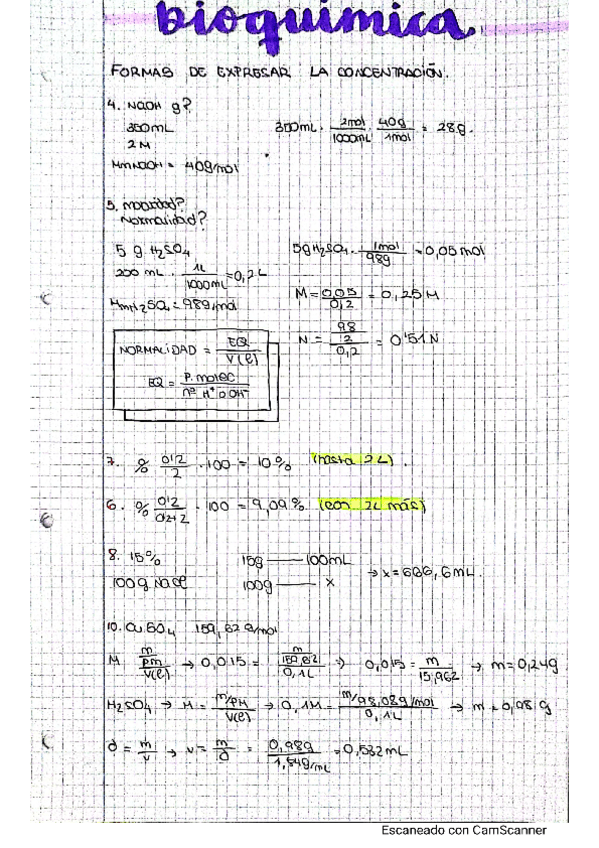 bioquímica.
FORMAS DE EXPRESAR LA CONCENTRACIÓN.
4. NaOH g?
350mL
2M
Mm NaOH = 40g/mol
350mL · 2mol/1000mL · 40g/1mol = 28g.
5. molaridad?
Normalidad?
5 g H2SO4
200 mL · 1L/1000mL = 0,2L
MmH2SO4 = 98g/mol
5g H2SO4 · 1mol/98g = 0,05mol
M = 0,05/0,2 = 0,25M
N = 98/2/0,2 = 0'51N
NORMALIDAD = EQ/V(l)
EQ = P.molec/nº H+ o OH-
7. % 0'2/2 · 100 = 10% (hasta 2L).
6. % 0'2/0'2+2 · 100 = 9,09% (con 2L más)
8. 15%
100g NaCl
15g —— 100mL
100g —— x
→ x = 666,6mL.
10. CuSO4 159,62g/mol
M m/pm/V(l) → 0,015 = m/159,62/0,1L → 0,015 = m/15,962 → m = 0,24g.
H2SO4 → M = m/PM/V(l) → 0,1M = m/98,08g/mol/0,1L → m = 0,98g
d = m/v → v = m/d = 0,98g/1,84g/mL = 0,532mL
Escaneado con CamScanner